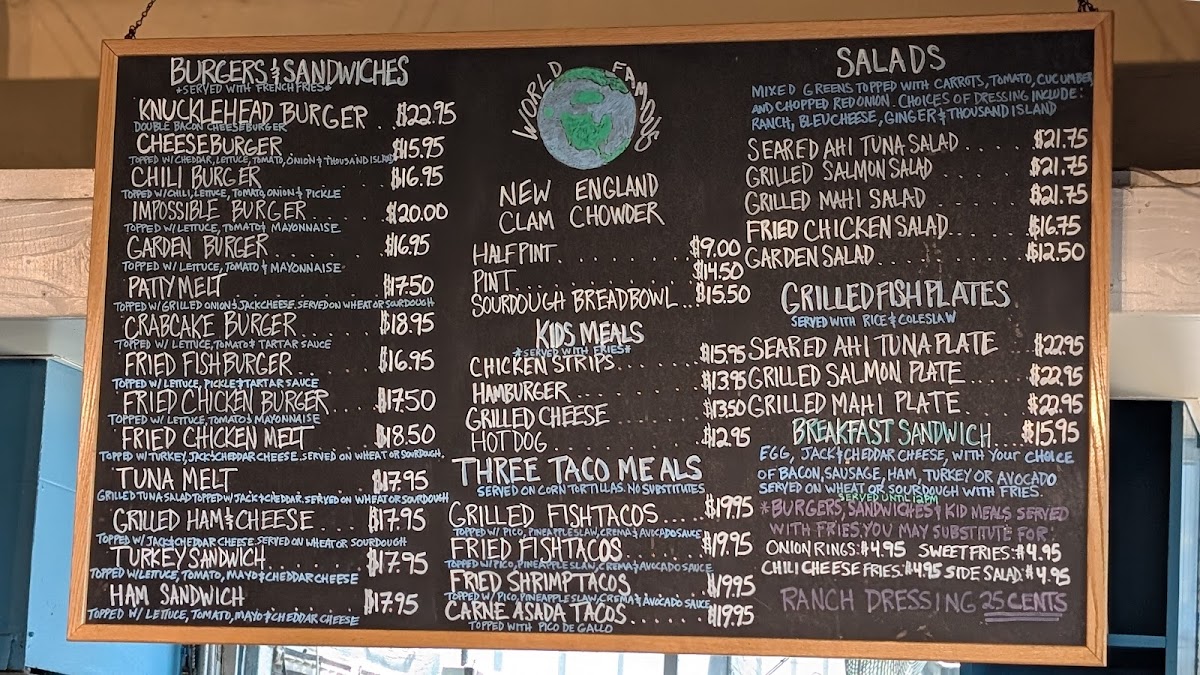 BURGERS & SANDWICHES
*SERVED WITH FRENCH FRIES*
KNUCKLEHEAD BURGER . . $22.95
DOUBLE BACON CHEESEBURGER
CHEESEBURGER . . . . . . . . $15.95
TOPPED W/ CHEDDAR, LETTUCE, TOMATO, ONION & THOUSAND ISLAND
CHILI BURGER . . . . . . . . . $16.95
TOPPED W/ CHILI, LETTUCE, TOMATO, ONION & PICKLE
IMPOSSIBLE BURGER . . . . . . $20.00
TOPPED W/ LETTUCE, TOMATO & MAYONNAISE
GARDEN BURGER . . . . . . . . $16.95
TOPPED W/ LETTUCE, TOMATO & MAYONNAISE
PATTY MELT . . . . . . . . . . $17.50
TOPPED W/ GRILLED ONION & JACK CHEESE. SERVED ON WHEAT OR SOURDOUGH
CRABCAKE BURGER . . . . . . $18.95
TOPPED W/ LETTUCE, TOMATO & TARTAR SAUCE
FRIED FISH BURGER . . . . . . $16.95
TOPPED W/ LETTUCE, PICKLE & TARTAR SAUCE
FRIED CHICKEN BURGER . . . $17.50
TOPPED W/ LETTUCE, TOMATO & MAYONNAISE
FRIED CHICKEN MELT . . . . . $18.50
TOPPED W/ TURKEY, JACK & CHEDAR CHEESE. SERVED ON WHEAT OR SOURDOUGH.
TUNA MELT . . . . . . . . . $17.95
GRILLED TUNA SALAD TOPPED W/ JACK & CHEDDAR. SERVED ON WHEAT OR SOURDOUGH
GRILLED HAM & CHEESE . . . . $17.95
TOPPED W/ JACK & CHEDAR CHEESE. SERVED ON WHEAT OR SOURDOUGH
TURKEY SANDWICH . . . . . . . $17.95
TOPPED W/ LETUCE, TOMATO, MAYO & CHEDDAR CHEESE
HAM SANDWICH . . . . . . . . $17.95
TOPPED W/ LETTUCE, TOMATO, MAYO & CHEDDAR CHEESE
WORLD FAMOUS
NEW ENGLAND
CLAM CHOWDER
HALF PINT . . . . . . . . . . $9.00
PINT . . . . . . . . . . . . . $14.50
SOURDOUGH BREADBOWL . . $15.50
KIDS MEALS
*SERVED WITH FRIES*
CHICKEN STRIPS . . . . . . $15.95
HAMBURGER . . . . . . . . . $13.95
GRILLED CHEESE . . . . . . . $13.50
HOT DOG . . . . . . . . . . . $12.95
THREE TACO MEALS
SERVED ON CORN TORTILLAS. NO SUBSTITUTES
GRILLED FISH TACOS . . . . $19.95
TOPPED W/ PICO, PINEAPPLE SLAW, CREMA & AVOCADO SAUCE
FRIED FISH TACOS . . . . . . $19.95
TOPPED W/ PICO, PINEAPPLE SLAW, CREMA & AVOCADO SAUCE
FRIED SHRIMP TACOS . . . . . $19.95
TOPPED W/ PICO, PINEAPPLE SLAW, CREMA & AVOCADO SAUCE
CARNE ASADA TACOS . . . . . . $19.95
TOPPED WITH PICO DE GALLO
SALADS
MIXED GREENS TOPPED WITH CARROTS, TOMATO, CUCUMBER
AND CHOPPED RED ONION. CHOICES OF DRESSING INCLUDE:
RANCH, BLEU CHEESE, GINGER & THOUSAND ISLAND
SEARED AHI TUNA SALAD . . . . . $21.75
GRILLED SALMON SALAD . . . . . . $21.75
GRILLED MAHI SALAD . . . . . . . $21.75
FRIED CHICKEN SALAD . . . . . . $16.75
GARDEN SALAD . . . . . . . . . . $12.50
GRILLED FISH PLATES
SERVED WITH RICE & COLESLAW
SEARED AHI TUNA PLATE . . . $22.95
GRILLED SALMON PLATE . . . . . $22.95
GRILLED MAHI PLATE . . . . . . $22.95
BREAKFAST SANDWICH . . . $15.95
EGG, JACK & CHEDAR CHEESE, WITH YOUR CHOICE
OF BACON, SAUSAGE, HAM, TURKEY OR AVOCADO
SERVED ON WHEAT OR SOURDOUGH WITH FRIES.
SERVED UNTIL 12PM
*BURGERS, SANDWICHES & KID MEALS SERVED
WITH FRIES. YOU MAY SUBSTITUTE FOR:
ONION RINGS: $4.95 SWEET FRIES: $4.95
CHILI CHEESE FRIES: $4.95 SIDE SALAD: $4.95
RANCH DRESSING 25 CENTS